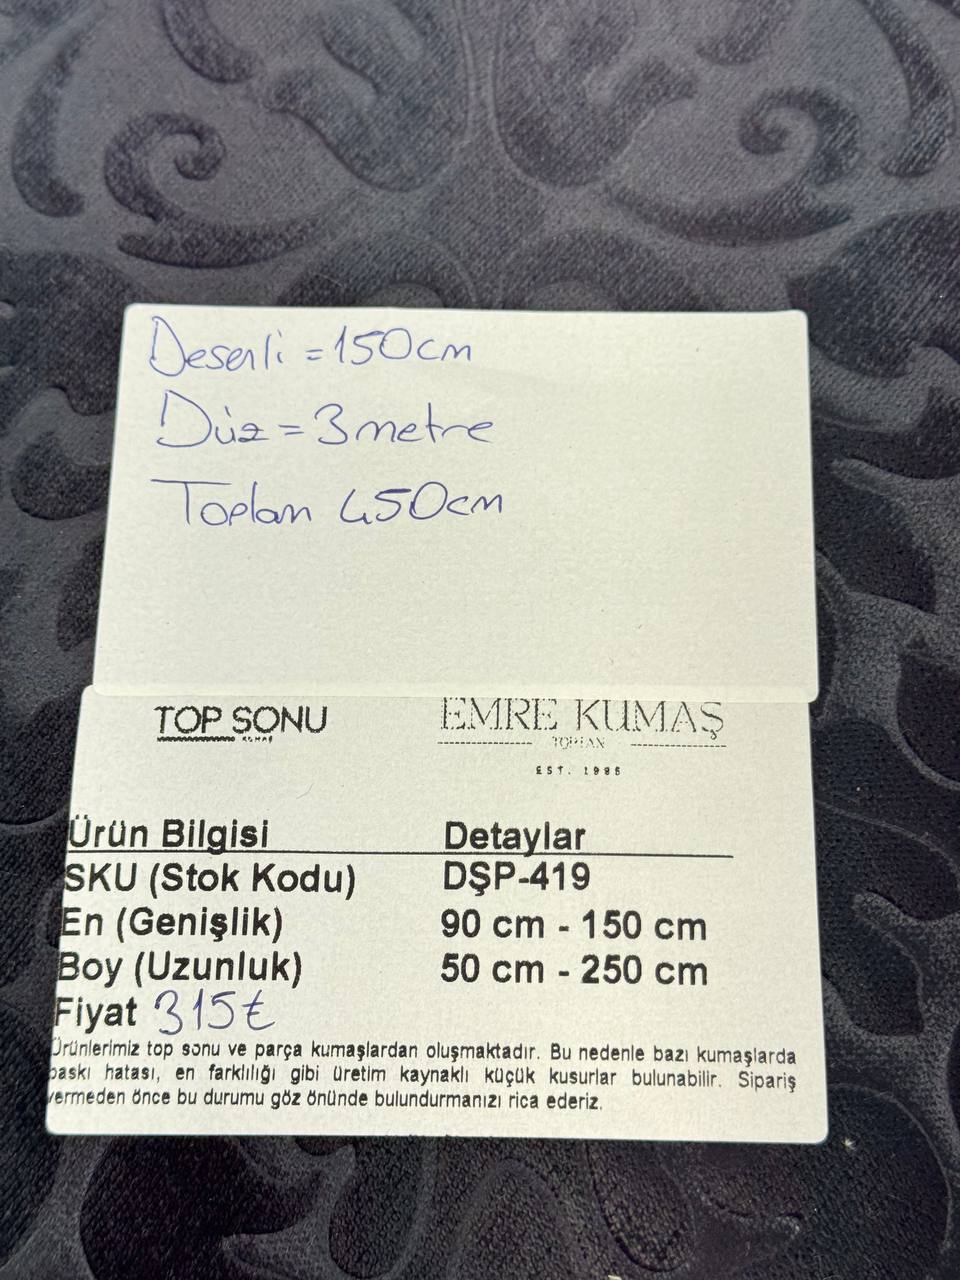 Desenli = 150cm
Düz = 3 metre
Toplam 450cm
TOP SONU
EMRE KUMAŞ
KUMAŞ
TOPTAN
EST. 1985
Ürün Bilgisi Detaylar
SKU (Stok Kodu) DŞP-419
En (Genişlik) 90 cm - 150 cm
Boy (Uzunluk) 50 cm - 250 cm
Fiyat 315₺
Ürünlerimiz top sonu ve parça kumaşlardan oluşmaktadır. Bu nedenle bazı kumaşlarda
baskı hatası, en farklılığı gibi üretim kaynaklı küçük kusurlar bulunabilir. Sipariş
vermeden önce bu durumu göz önünde bulundurmanızı rica ederiz.